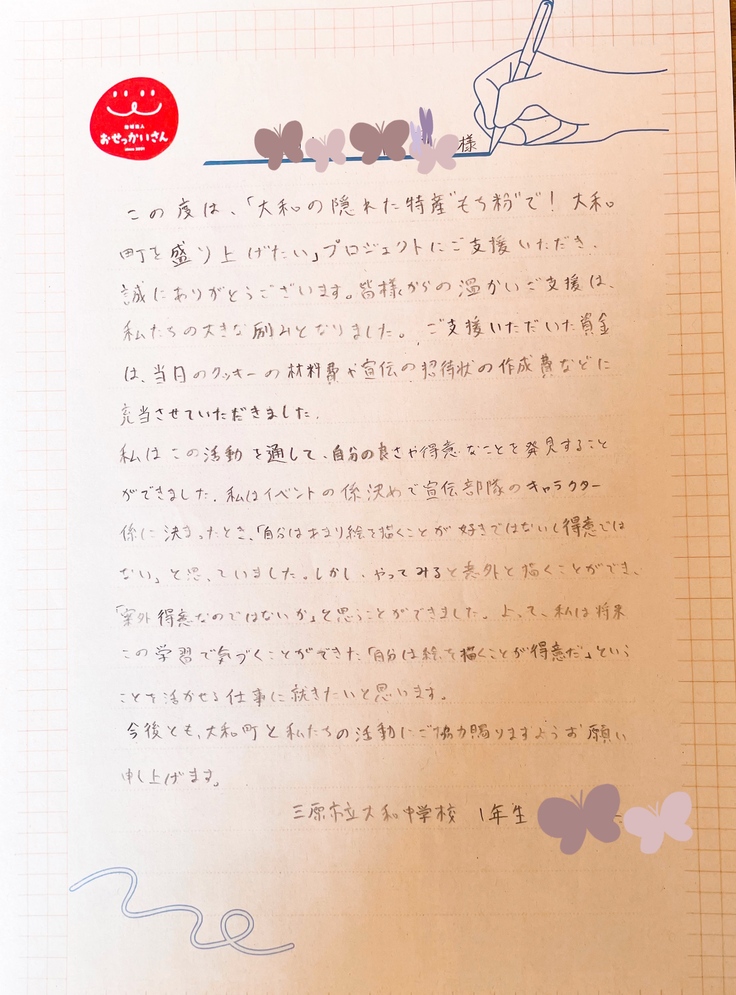 おせっかいさん
様
この度は、「大和の隠れた特産"もち粉"で！大和
町を盛り上げたい」プロジェクトにご支援いただき、
誠にありがとうございます。皆様からの温かいご支援は、
私たちの大きな励みとなりました。ご支援いただいた資金
は、当日のクッキーの材料費や宣伝の招待状の作成費などに
充当させていただきました。
私はこの活動を通して、自分の良さや得意なことを発見すること
ができました。私はイベントの係決めで宣伝部隊のキャラクター
係に決まったとき、「自分はあまり絵を描くことが好きではないし得意では
ない」と思っていました。しかし、やってみると意外と描くことができ、
「案外得意なのではないか」と思うことができました。よって、私は将来
この学習で気づくことができた「自分は絵を描くことが得意だ」という
ことを活かせる仕事に就きたいと思います。
今後とも、大和町と私たちの活動にご協力賜りますようお願い
申し上げます。
三原市立大和中学校 1年生